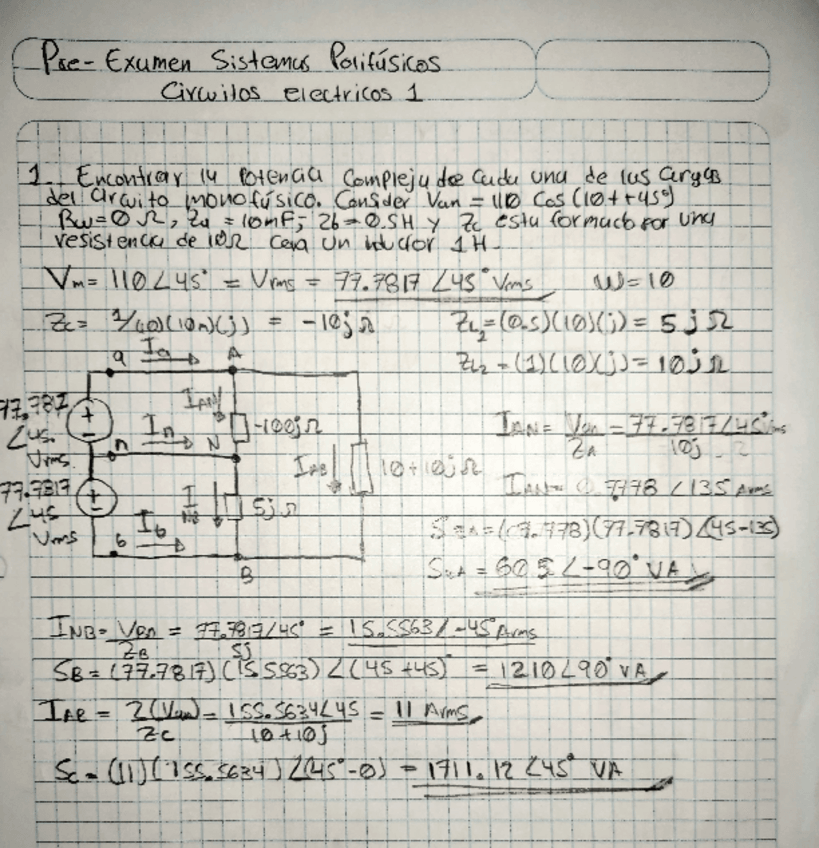 Pre-Examen Sistemas Polifásicos
Circuitos electricos 1
1. Encontrar la Potencia Compleja de Cada una de las Cargas
del Circuito monofásico. Consider Van = 110 Cos (10t+45°)
Rw=0 Ω, Za = 10mF, Zb=0.5H y Zc esta formado por una
resistencia de 10Ω con un inductor 1H.
Vm = 110∠45° = Vrms = 77.7817 ∠45° Vrms W=10
Zc= 1/(10)(10m)(j) = -10j Ω ZL2=(0.5)(10)(j) = 5j Ω
ZL2 = (1)(10)(j) = 10j Ω
a Ia A
77.7817 ∠45. Vrms
IAN -100jΩ
n In N
IAB 10+10jΩ
77.7817 ∠45 Vrms
I 5jΩ
b Ib
B
IAN = Van/ZA = 77.7817∠45° Vrms/10j
IAN = 7.778 ∠135 Arms
SZA = (7.778)(77.7817)∠(45-135)
SZA = 605∠-90° VA
INB= VBn/ZB = 77.7817∠45°/5j = 15.5563∠-45° Arms
SB = (77.7817)(15.5563) ∠(45+45)° = 1210∠90° VA
IAB = 2(Van)/Zc = 155.5634∠45/10+10j = 11 Arms
Sc = (11)(155.5634) ∠(45°-0) = 1711.12 ∠45° VA